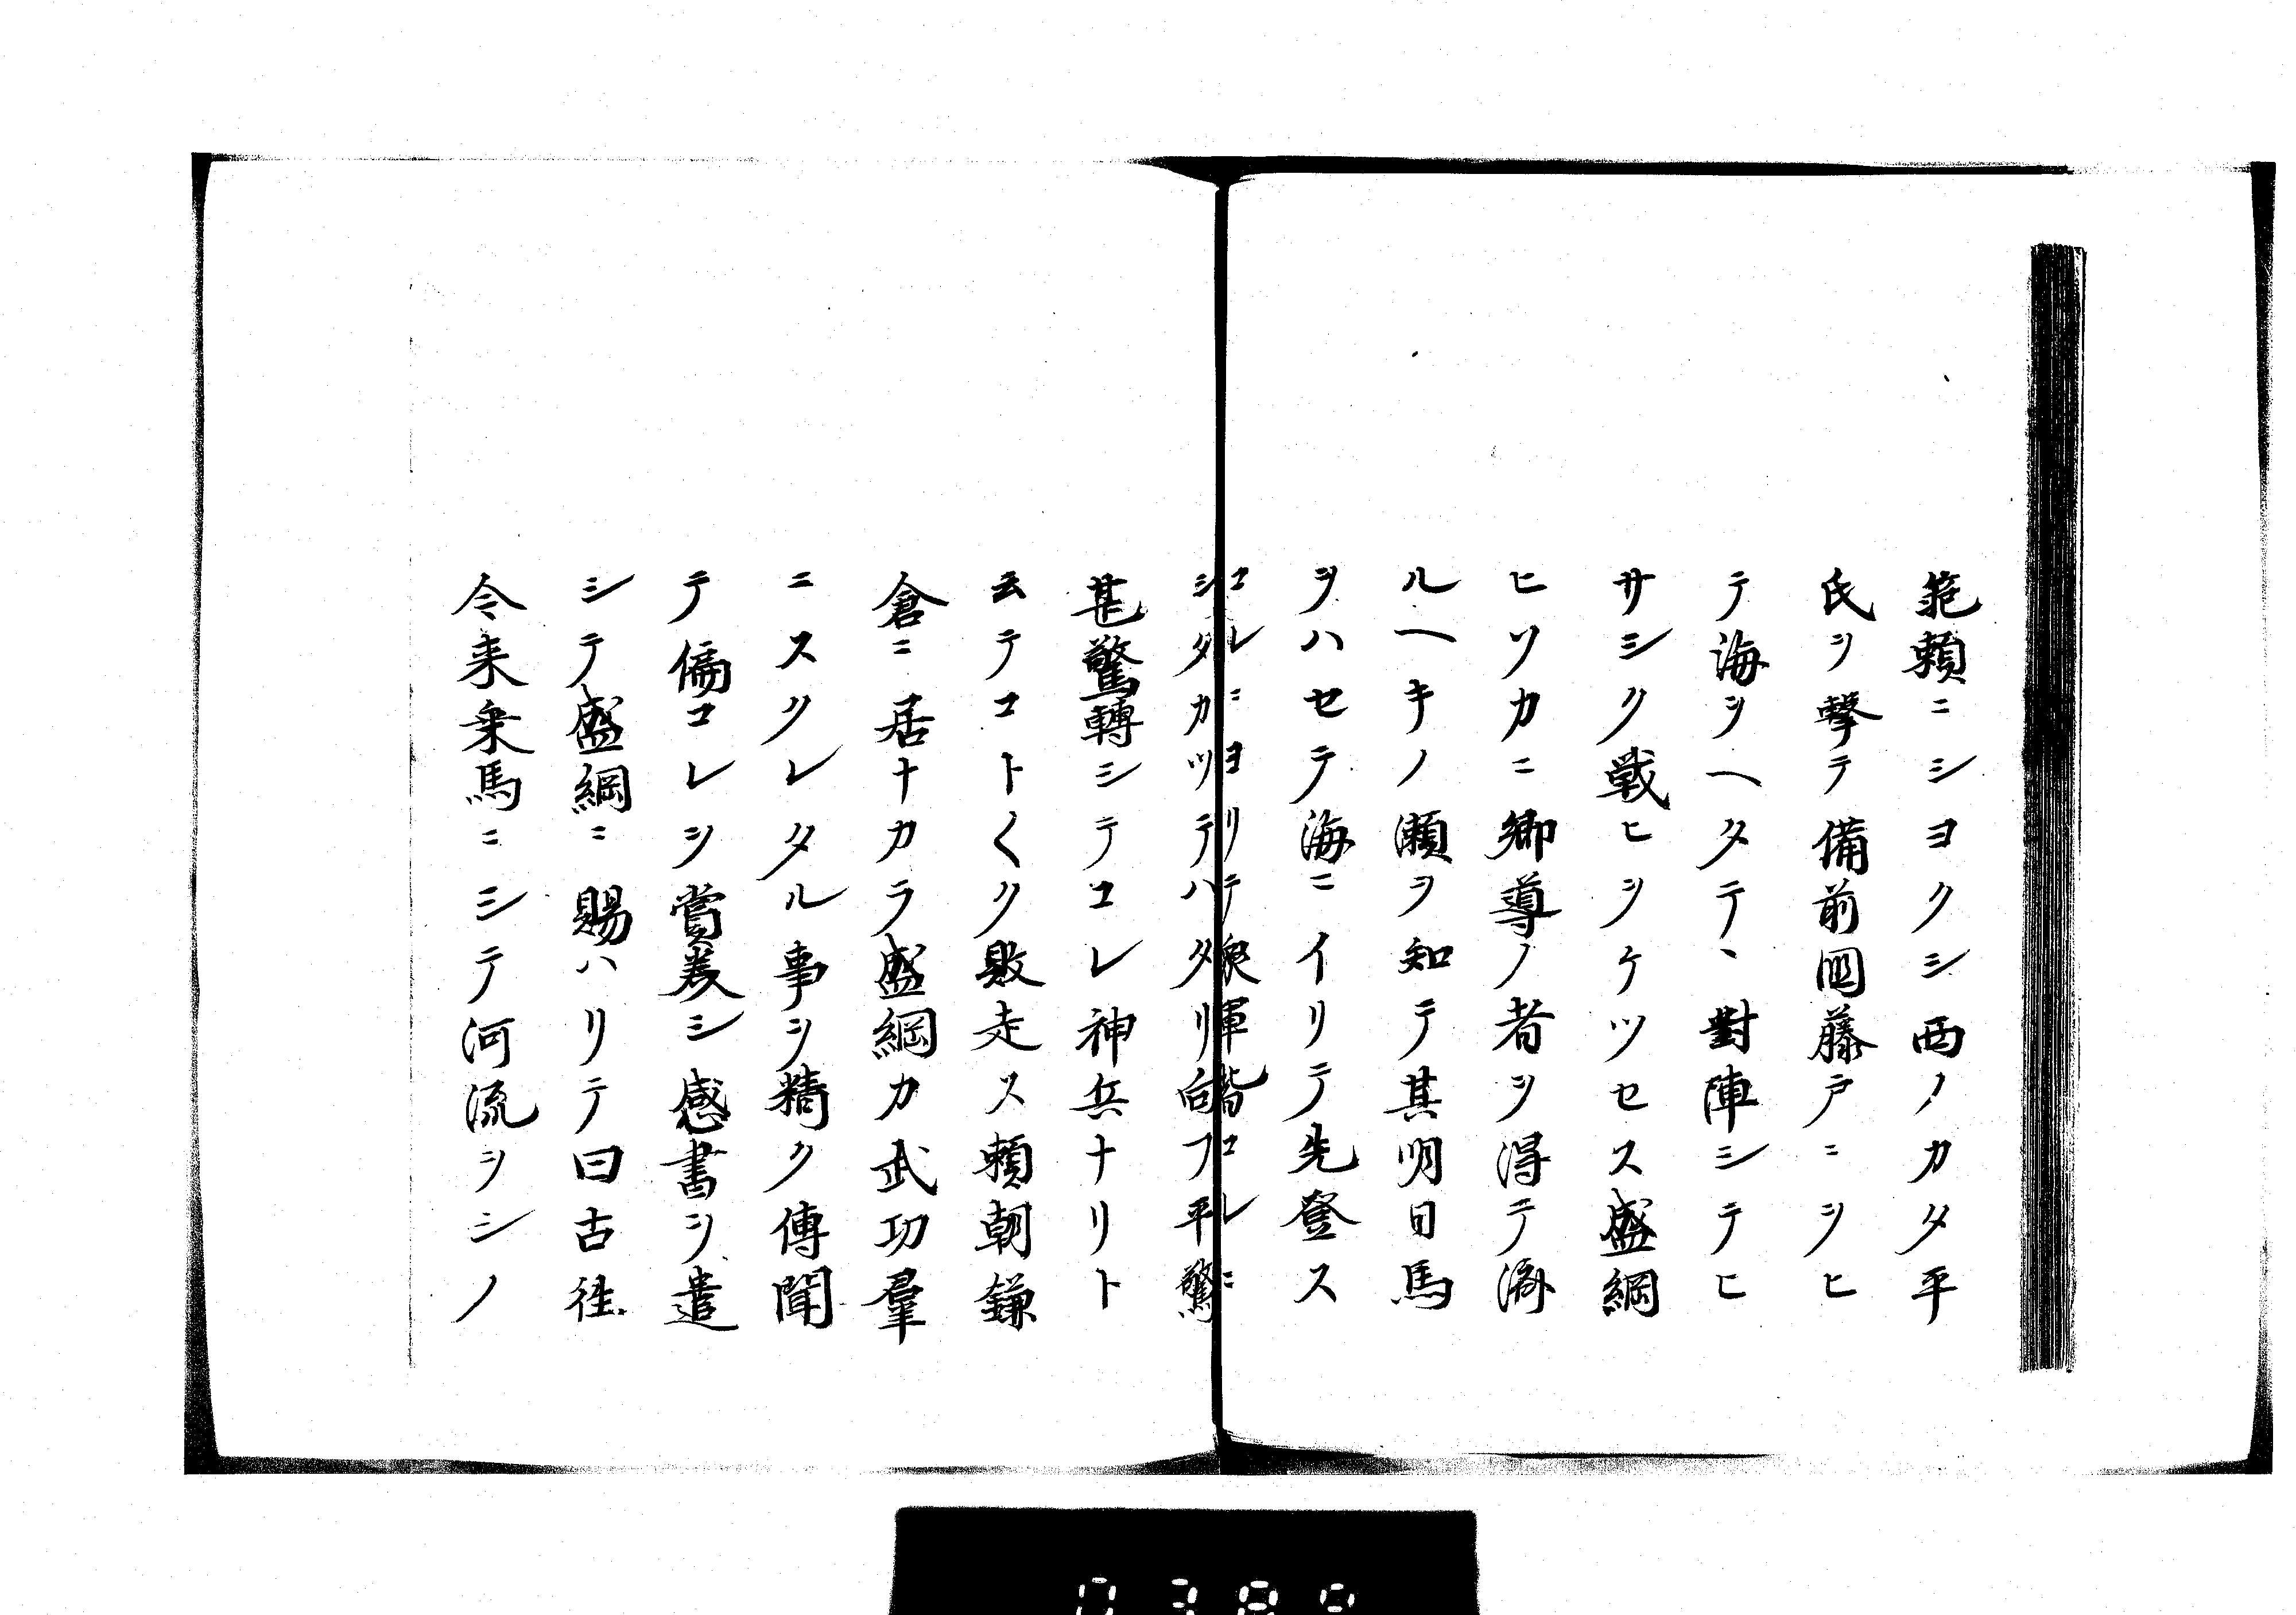 範頼ニシヨクシ西ノカタ平
氏ヲ撃テ備前國藤戸ニヲヒ
テ海ヲヘタテヽ對陣シテヒ
サシク戦ヒヲケツセス盛綱
ヒソカニ郷導ノ者ヲ得テ渉
ルヘキノ瀬ヲ知テ其明日馬
ヲハセテ海ニイリテ先登ス
コレニヨリテ衆軍皆コレニ
シタカツテハタリ向フ平驚
甚驚轉シテコレ神兵ナリト
云テコト〱ク敗走ス頼朝鎌
倉ニ居ナカラ盛綱カ武功羣
ニスクレタル事ヲ精ク傳聞
テ偏コレヲ賞美シ感書ヲ遣
シテ盛綱ニ賜ハリテ曰古往
今来乗馬ニシテ河流ヲシノ